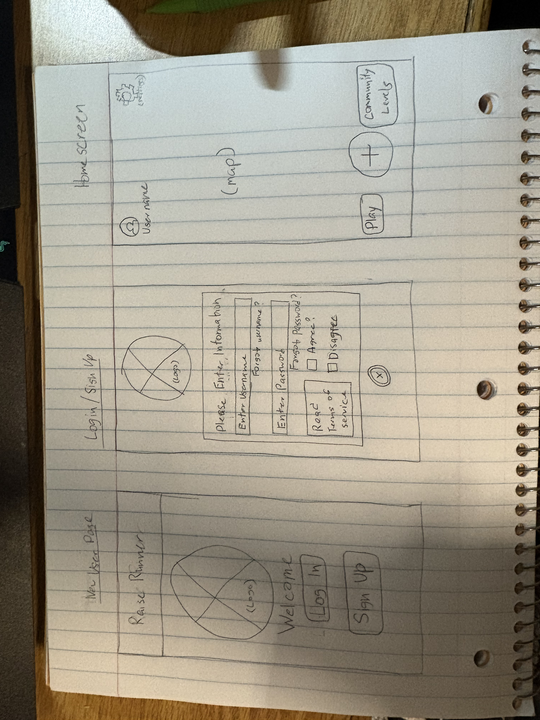 New User Page
Raise Runner
(Logo)
Welcome
Log In
Sign Up
Login / Sign Up
(Logo)
Please Enter Information
Enter Username
Forgot username?
Enter Password
Forgot Password?
Read
Terms of
service
Agree?
Disagree
X
Home screen
Username
(settings)
(map)
Play
+
Community
Levels